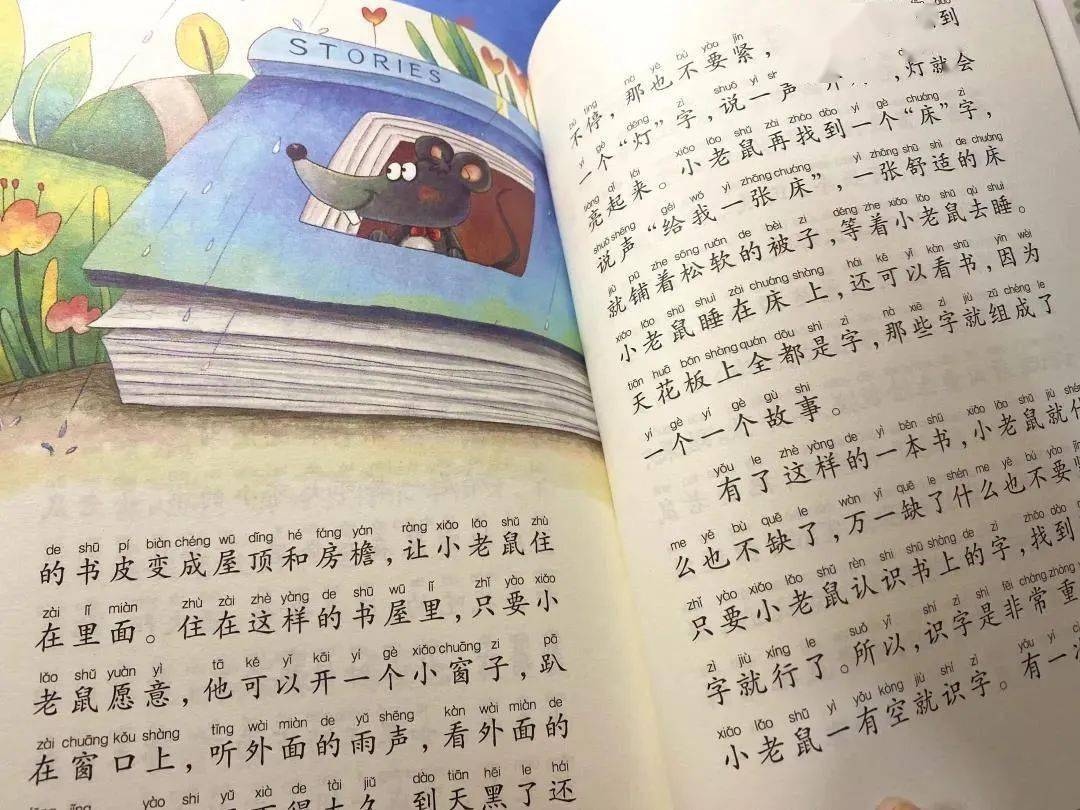 STORIES
de shū pí biàn chéng wū dǐng hé fáng yán ràng xiǎo lǎo shǔ zhù
的书皮变成屋顶和房檐，让小老鼠住
zài lǐ miàn zhù zài zhè yàng de shū wū lǐ zhǐ yào xiǎo
在里面。住在这样的书屋里，只要小
lǎo shǔ yuàn yì tā kě yǐ kāi yí gè xiǎo chuāng zi pā
老鼠愿意，他可以开一个小窗子，趴
zài chuāng kǒu shàng tīng wài miàn de yǔ shēng kàn wài miàn de
在窗口上，听外面的雨声，看外面的
jǐng yào shi yǔ xià de tài jiǔ dào tiān hēi le hái
得太久，到天黑了还
bù tíng nà yě bú yào jǐn
不停，那也不要紧，到
yí gè dēng zì shuō yì shēng
一个“灯”字，说一声，灯就会
liàng qǐ lái xiǎo lǎo shǔ zài zhǎo dào yí gè chuáng zì
亮起来。小老鼠再找到一个“床”字，
shuō shēng gěi wǒ yì zhāng chuáng yì zhāng shū shì de chuáng
说声“给我一张床”，一张舒适的床
jiù pū zhe sōng ruǎn de bèi zi děng zhe xiǎo lǎo shǔ qù shuì
就铺着松软的被子，等着小老鼠去睡。
xiǎo lǎo shǔ shuì zài chuáng shàng hái kě yǐ kàn shū yīn wèi
小老鼠睡在床上，还可以看书，因为
tiān huā bǎn shàng quán dōu shì zì nà xiē zì jiù zǔ chéng le
天花板上全都是字，那些字就组成了
yí gè yí gè gù shi
一个一个故事。
yǒu le zhè yàng de yì běn shū xiǎo lǎo shǔ jiù shén
有了这样的一本书，小老鼠就什
me yě bù quē le wàn yī quē le shén me yě bú yào jǐn
么也不缺了，万一缺了什么也不要紧
zhǐ yào xiǎo lǎo shǔ rèn shi shū shàng de zì zhǎo dào
只要小老鼠认识书上的字，找到
zì jiù xíng le suǒ yǐ shí zì shì fēi cháng zhòng
字就行了。所以，识字是非常重
xiǎo lǎo shǔ yì yǒu kòng jiù shí zì yǒu yí cì
小老鼠一有空就识字。有一次